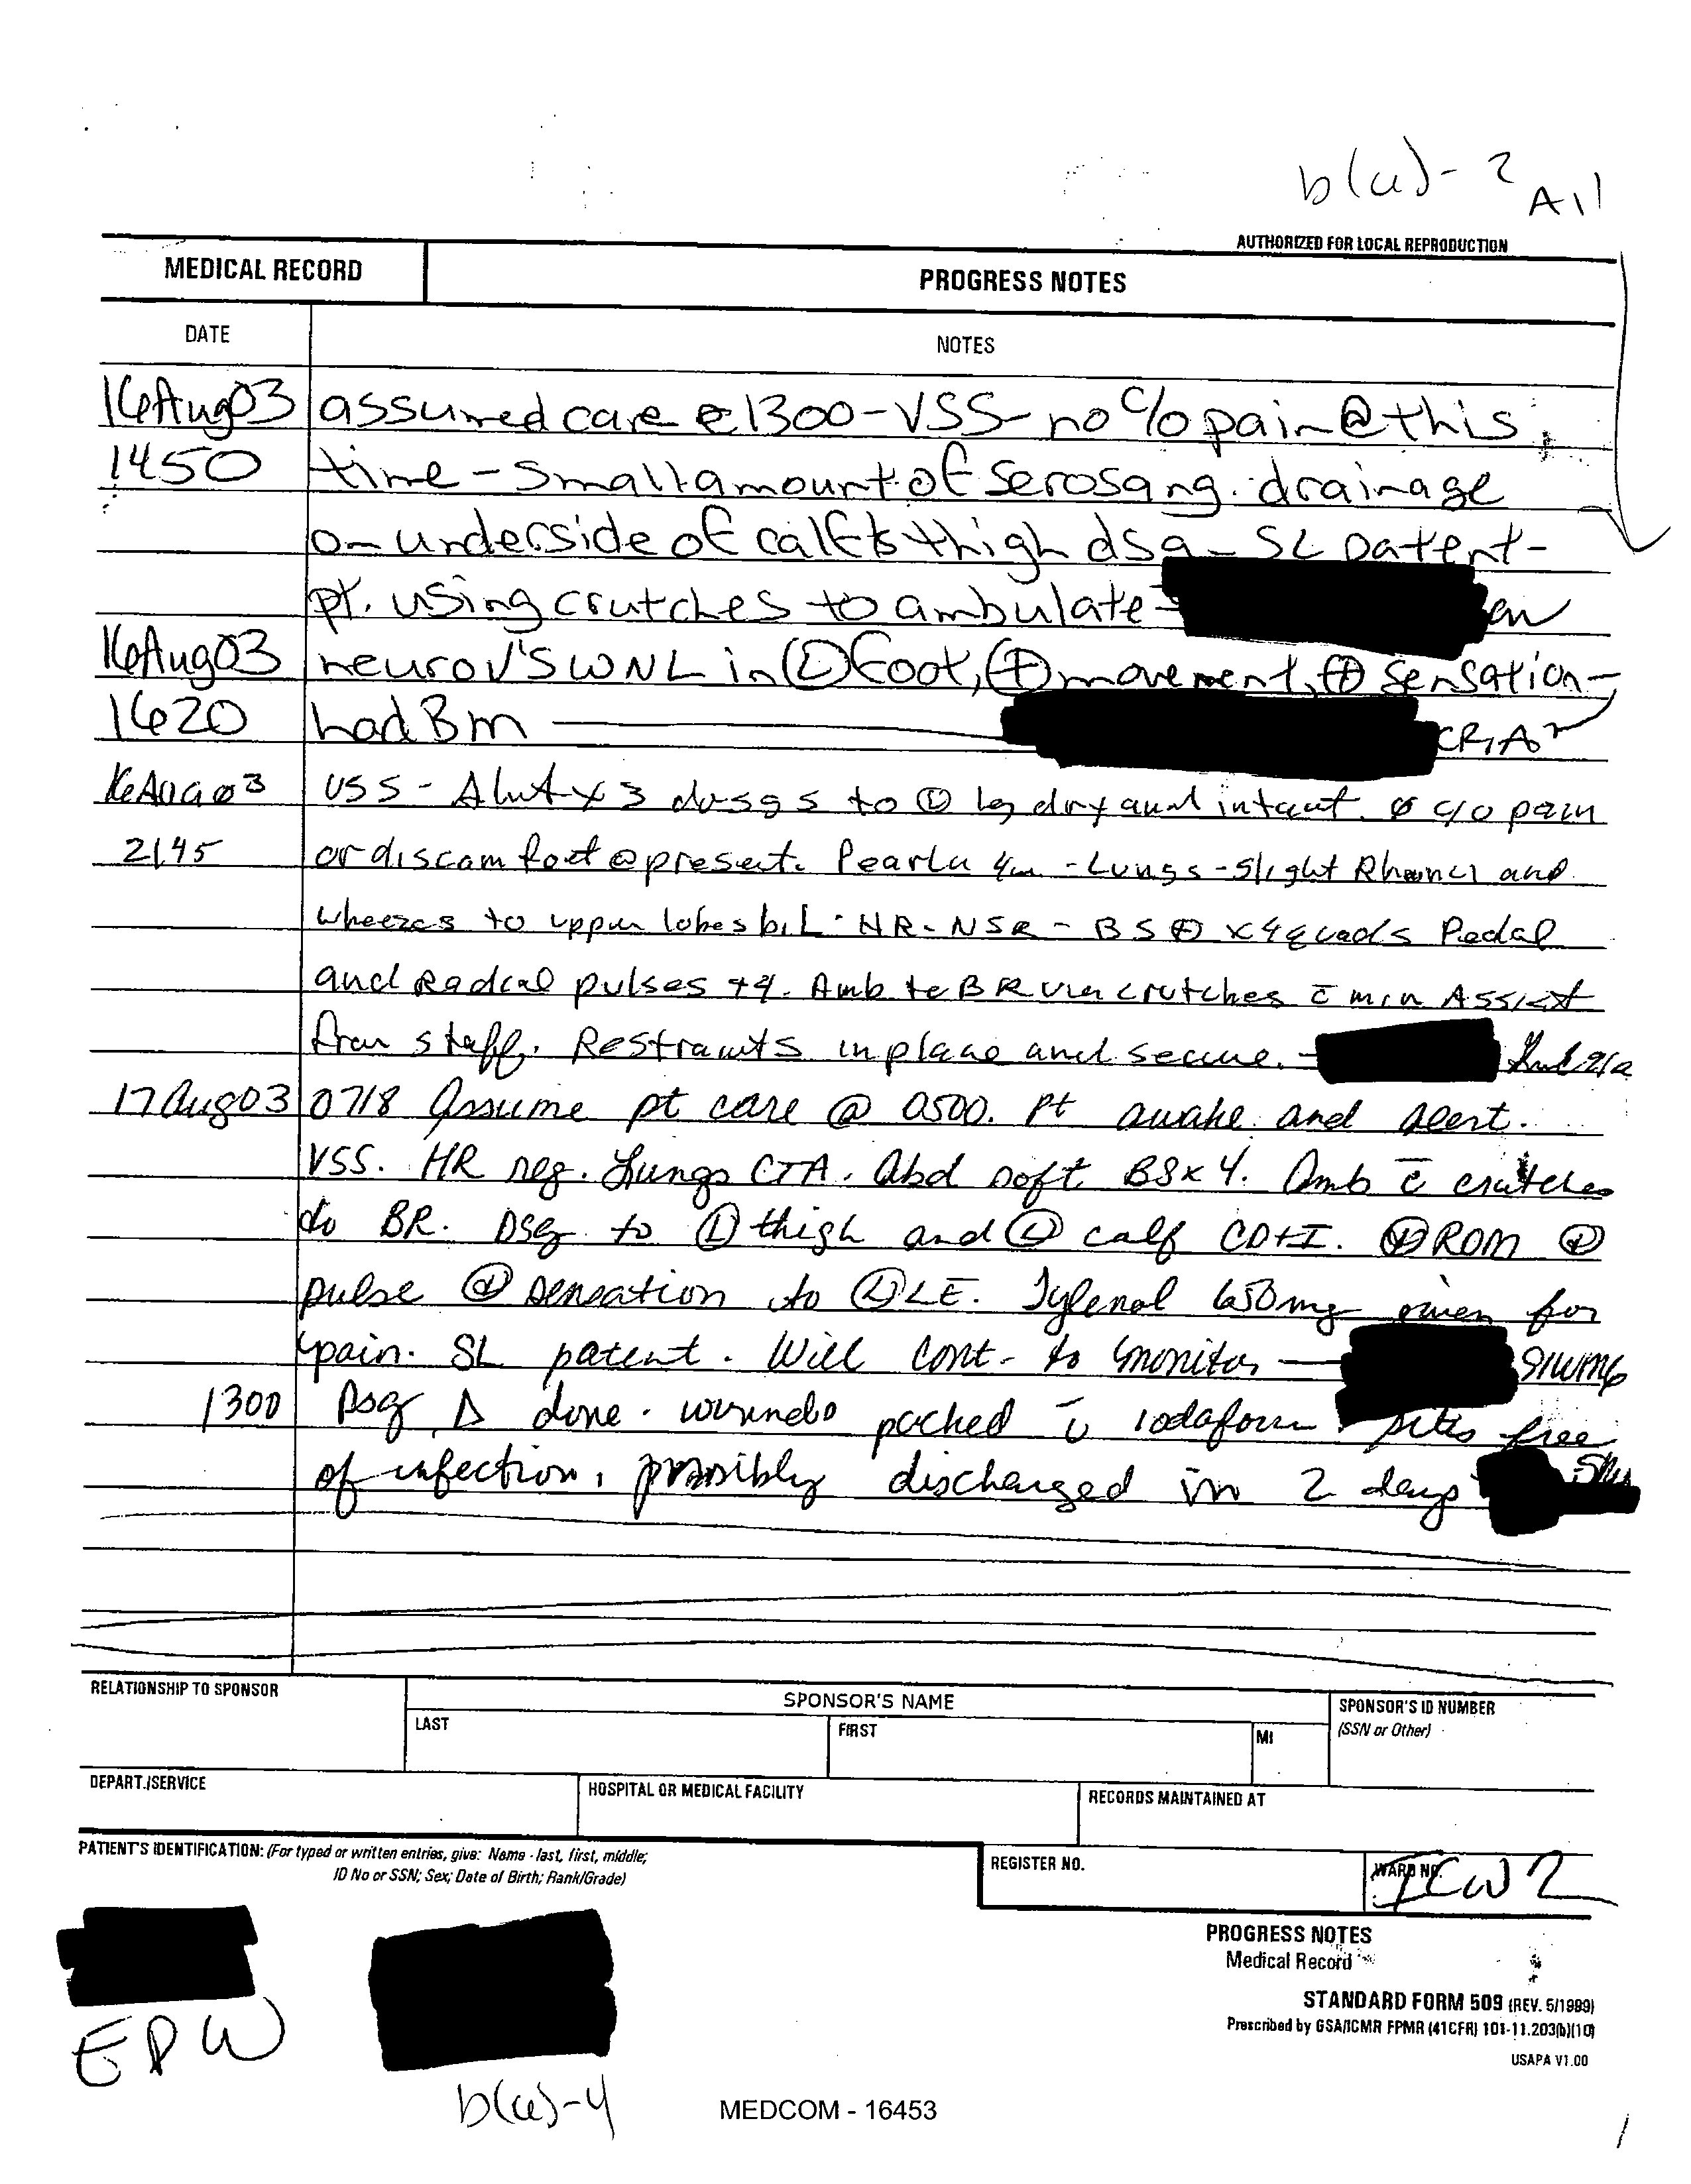 b(6)-2
All
AUTHORIZED FOR LOCAL REPRODUCTION
MEDICAL RECORD
PROGRESS NOTES
DATE
NOTES
16Aug03 assumed care @ 1300-VSS- no c/o pain @ this
1450 time - small amount of serosang. drainage
on underside of calf & thigh dsg - SL patent-
pt. using crutches to ambulate-
16Aug03 neurov'S WNL in Ⓛ foot, ⊕ movement, ⊕ sensation-
1620 had Bm
16Aug03 VSS - Alert x 3 dsgs to Ⓛ leg dry and intact. ø c/o pain
2145 or discomfort @ present. Pearla 4m - Lungs - slight Rhonci and
wheezes to upper lobes bil - HR - NSR - BS ⊕ x 4 quads Pedal
and Radial pulses +4. Amb to BR via crutches c̄ min Assist
from staff. Restraints in place and secure. -
17Aug03 0718 Assume pt care @ 0500. Pt awake and alert.
VSS. HR reg. Lungs CTA. Abd soft BSx4. Amb c̄ crutches
to BR. Dsg to Ⓛ thigh and Ⓛ calf CD+I. ⊕ ROM ⊕
pulse ⊕ sensation to Ⓛ LE. Tylenol 650mg given for
pain. SL patent. Will cont. to monitor 91WM6
1300 Dsg Δ done. wounds packed c̄ iodaform. sites free
of infection, possibly discharged in 2 days
RELATIONSHIP TO SPONSOR
SPONSOR'S NAME
LAST
FIRST
MI
SPONSOR'S ID NUMBER
(SSN or Other)
DEPART./SERVICE
HOSPITAL OR MEDICAL FACILITY
RECORDS MAINTAINED AT
PATIENT'S IDENTIFICATION: (For typed or written entries, give: Name - last, first, middle;
ID No or SSN; Sex; Date of Birth; Rank/Grade)
REGISTER NO.
WARD NO.
ICW 2
PROGRESS NOTES
Medical Record
STANDARD FORM 509 (REV. 5/1999)
Prescribed by GSA/ICMR FPMR (41CFR) 101-11.203(b)(10)
USAPA V1.00
EPW
b(6)-4
MEDCOM - 16453